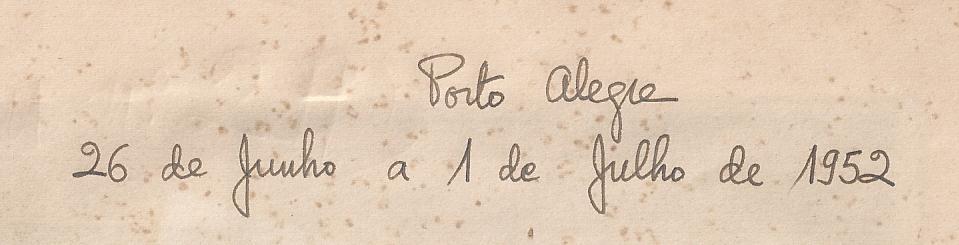 Porto Alegre
26 de Junho a 1 de Julho de 1952